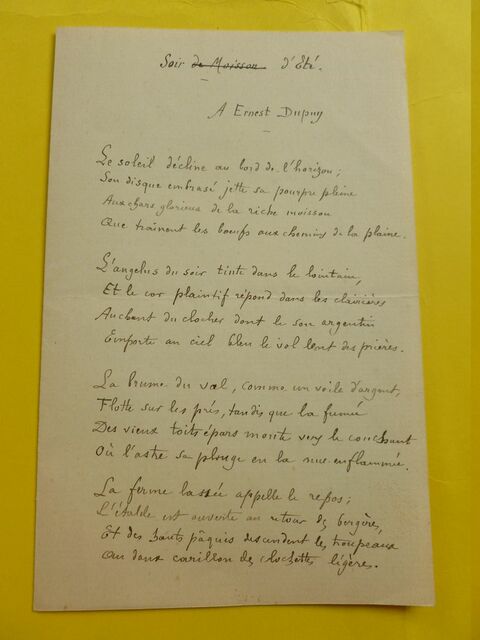 Soir de Moisson d'Eté.
A Ernest Dupuy
Le soleil décline au bord de l'horizon;
Son disque embrasé jette sa pourpre pleine
Aux chars glorieux de la riche moisson
Que traînent les bœufs aux chemins de la plaine.
L'angelus du soir tinte dans le lointain,
Et le cor plaintif répond dans les clairières
Au chant du clocher dont le son argentin
Emporte au ciel bleu le vol lent des prières.
La brume du val, comme un voile d'argent,
Flotte sur les prés, tandis que la fumée
Des vieux toits épars monte vers le couchant
Où l'astre se plonge en la nue enflammée.
La ferme lassée appelle le repos;
L'étable est ouverte au retour des bergères,
Et des hauts pâquis descendent les troupeaux
Au doux carillon des clochettes légères.